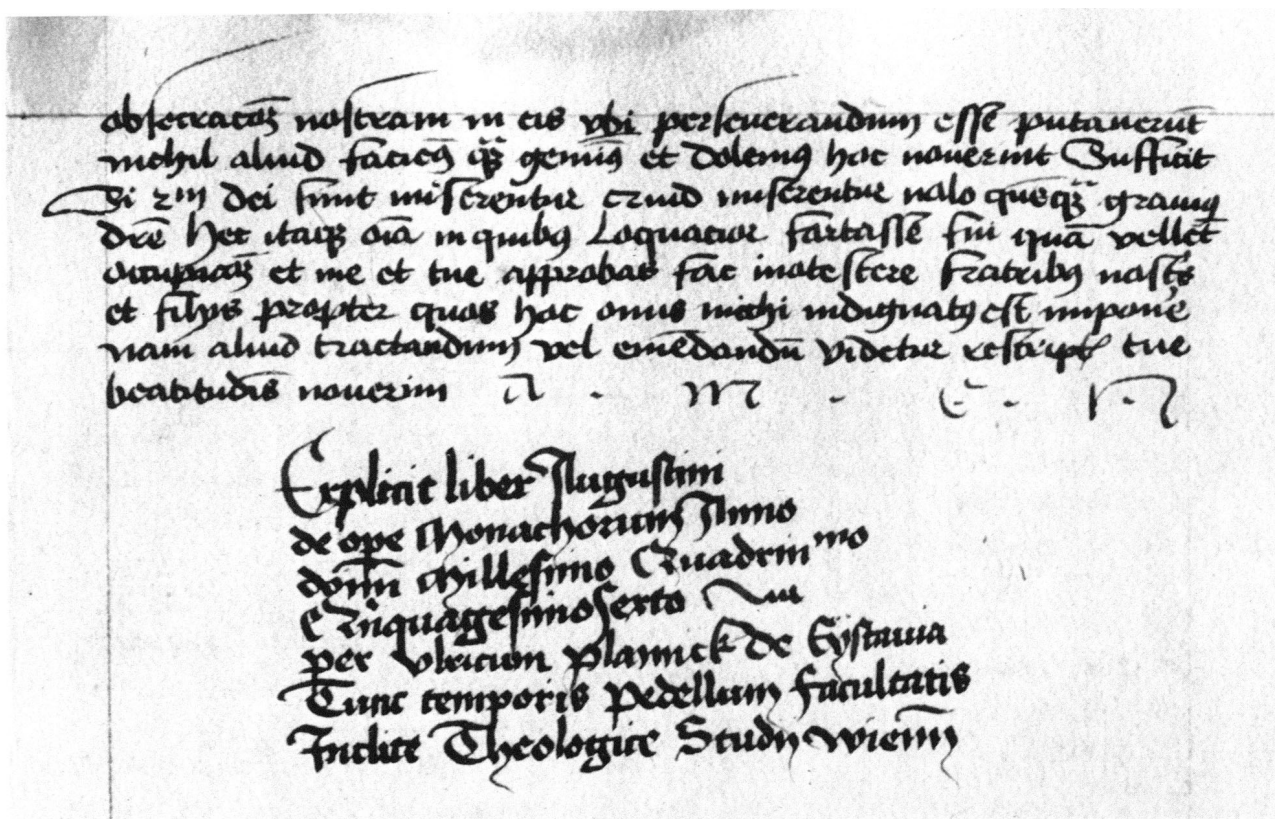 obsecracōꝫ nostram in eis vbi perseuerandum esse putauerūt
nichil aliud faciēꝰ qꝫ gemiꝰ et dolemꝰ hoc nouerint Sufficit
Si dei sunt miserentur miserentur nolo grauiꝰ
dicē hec itaqꝫ oīa in quibꝰ Loquacior fortasse fui quā vellēt
occupacōꝫ et me et tue approbas fac inotescere fratribꝰ nostrīs
et filijs propter quos hoc onus michi indignatꝰ est imponē
nam aliud tractandum vel emēdandū videtur rescript tue
beatitudīs nouerim A · M · E · N
Explicit liber Augustini
de oꝑe Monachorum Anno
domī Millesimo Quadrinᵐᵒ
Qūiquagesimosexto
ꝑer vlricum plannck de Eystauia
Tunc temporis pedellum facultatis
Inclite Theologice Studij wienn̄